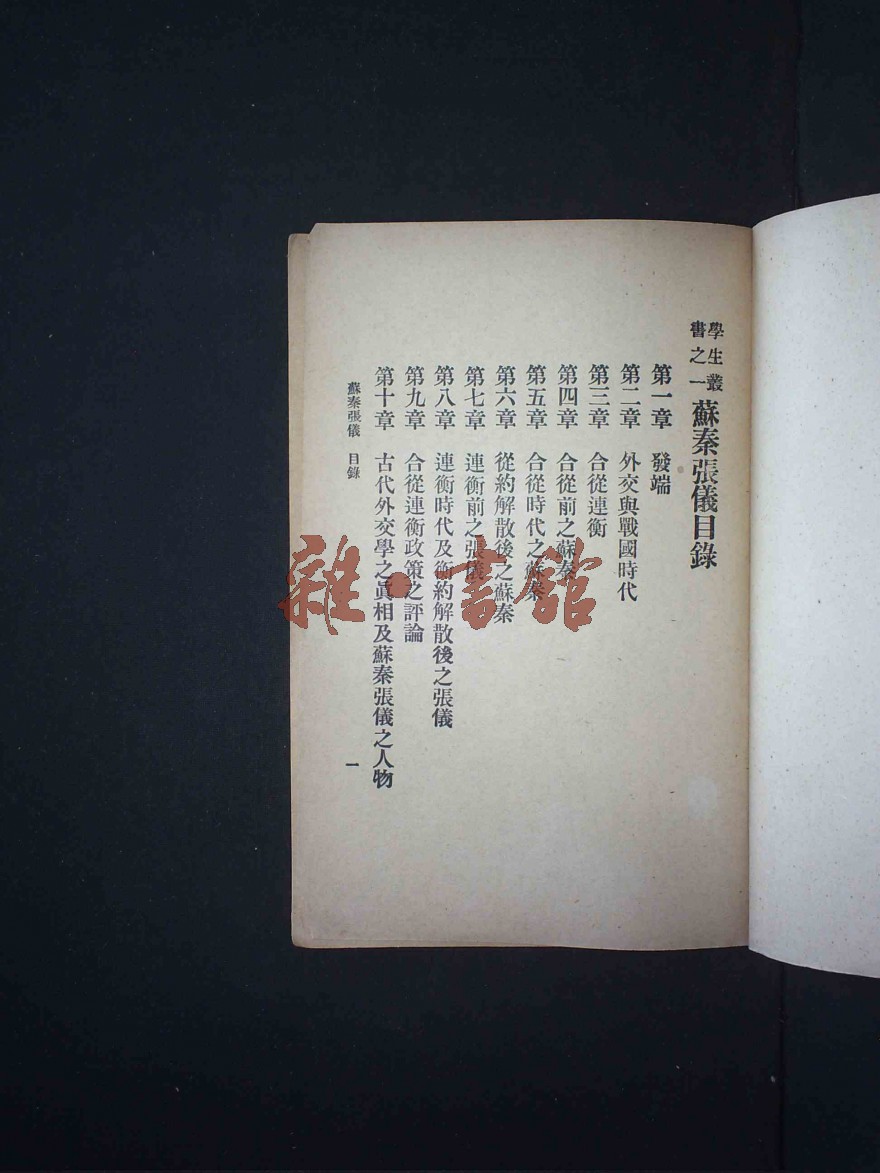 學生叢書之一 蘇秦張儀目錄
第一章 發端
第二章 外交與戰國時代
第三章 合從連衡
第四章 合從前之蘇秦
第五章 合從時代之蘇秦
第六章 從約解散後之蘇秦
第七章 連衡前之張儀
第八章 連衡時代及衡約解散後之張儀
第九章 合從連衡政策之評論
第十章 古代外交學之眞相及蘇秦張儀之人物
蘇秦張儀 目錄 一
雜·書館